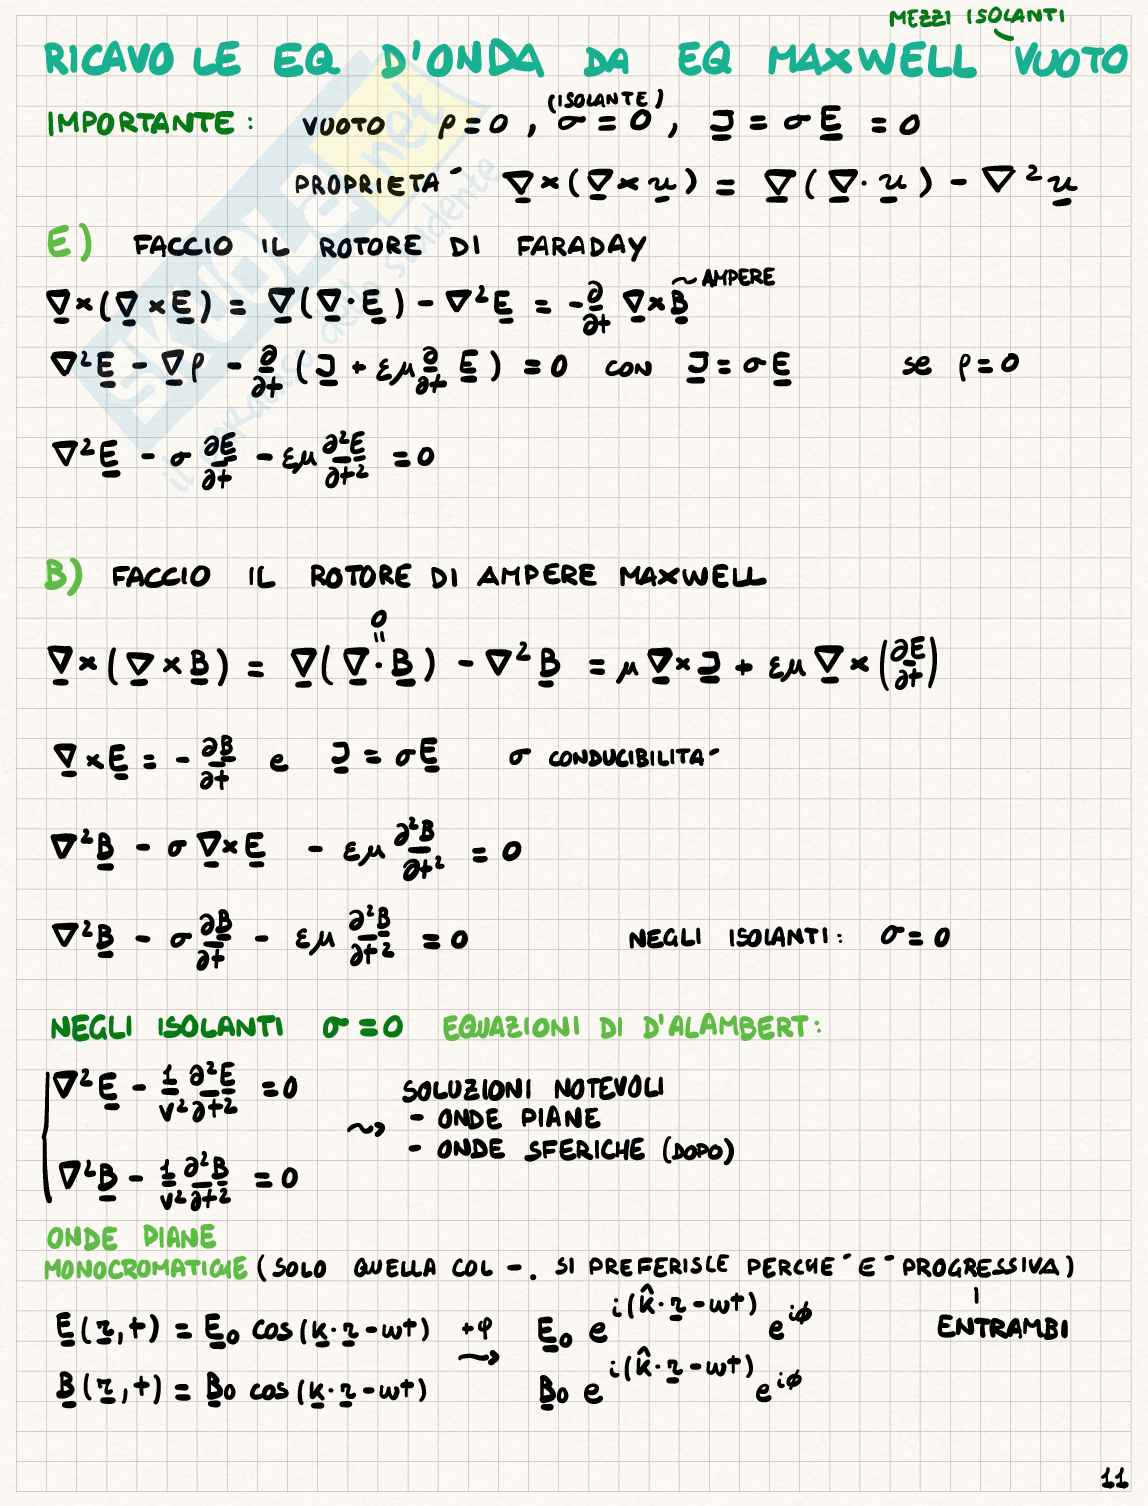 MEZZI ISOLANTI
RICAVO LE EQ D'ONDA DA EQ MAXWELL VUOTO
(ISOLANTE)
IMPORTANTE: VUOTO ρ=0, σ=0, J = σE = 0
PROPRIETA´ ∇×(∇×u) = ∇(∇·u) - ∇²u
E) FACCIO IL ROTORE DI FARADAY
∇×(∇×E) = ∇(∇·E) - ∇²E = -∂/∂t ∇×B ~ AMPERE
∇²E - ∇ρ - ∂/∂t (J + εμ ∂/∂t E) = 0 CON J = σE se ρ=0
∇²E - σ ∂E/∂t - εμ ∂²E/∂t² = 0
B) FACCIO IL ROTORE DI AMPERE MAXWELL
0
=
∇×(∇×B) = ∇(∇·B) - ∇²B = μ∇×J + εμ∇×(∂E/∂t)
∇×E = -∂B/∂t e J = σE σ CONDUCIBILITA´
∇²B - σ∇×E - εμ ∂²B/∂t² = 0
∇²B - σ ∂B/∂t - εμ ∂²B/∂t² = 0 NEGLI ISOLANTI: σ=0
NEGLI ISOLANTI σ=0 EQUAZIONI DI D'ALAMBERT:
∇²E - 1/v² ∂²E/∂t² = 0
SOLUZIONI NOTEVOLI
- ONDE PIANE
- ONDE SFERICHE (DOPO)
∇²B - 1/v² ∂²B/∂t² = 0
ONDE PIANE
MONOCROMATICHE (SOLO QUELLA COL -. SI PREFERISCE PERCHE´ E´ PROGRESSIVA)
ENTRAMBI
E(r,t) = E₀ cos(k·r-ωt) +φ → E₀ e^i(k̂·r-ωt) e^iφ
B(r,t) = B₀ cos(k·r-ωt) B₀ e^i(k̂·r-ωt) e^iφ
11
SKUOLA.net
il paradiso dello studente